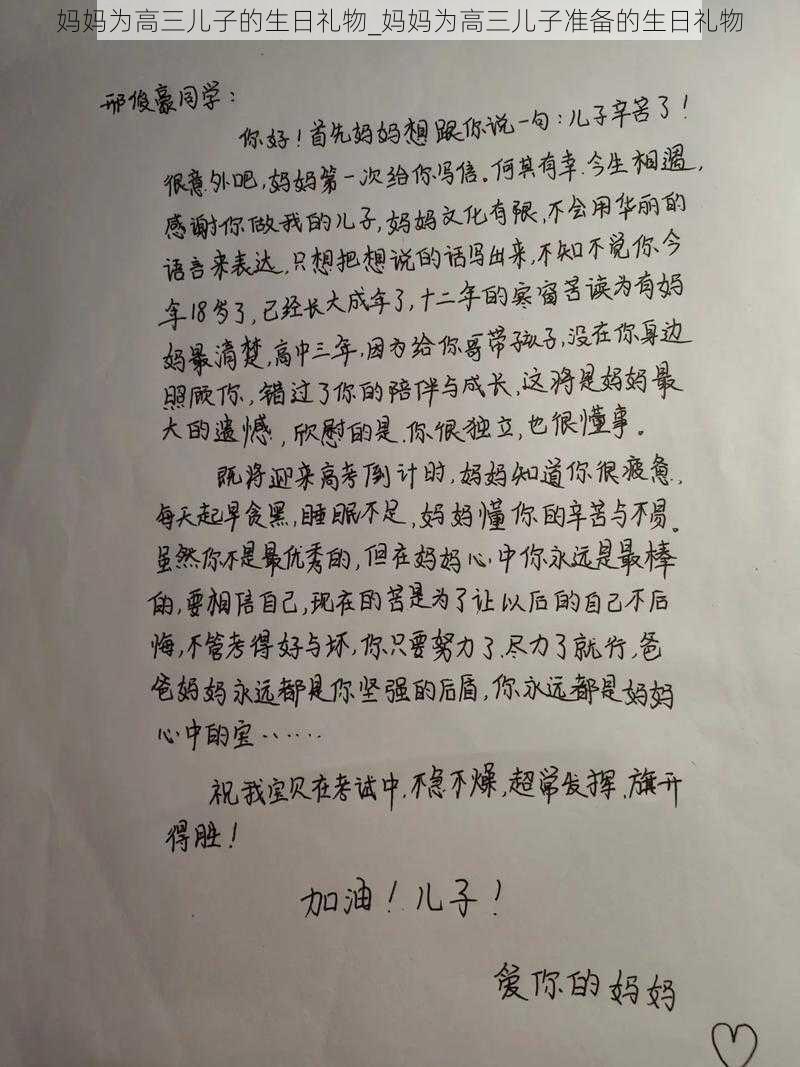 妈妈为高三儿子的生日礼物_妈妈为高三儿子准备的生日礼物
邢俊豪同学：
你好！首先妈妈想跟你说一句：儿子辛苦了！
很意外吧，妈妈第一次给你写信。何其有幸.今生相遇，
感谢你做我的儿子，妈妈文化有限，不会用华丽的
语言来表达，只想把想说的话写出来，不知不觉你今
年18岁了，已经长大成年了，十二年的寒窗苦读为有妈
妈最清楚，高中三年，因为给你哥带孩子，没在你身边
照顾你，错过了你的陪伴与成长，这将是妈妈最
大的遗憾，欣慰的是.你很独立，也很懂事。
既将迎来高考倒计时，妈妈知道你很疲惫，
每天起早贪黑，睡眠不足，妈妈懂你的辛苦与不易。
虽然你不是最优秀的，但在妈妈心中你永远是最棒
的，要相信自己，现在的苦是为了让以后的自己不后
悔，不管考得好与坏，你只要努力了.尽力了就行，爸
爸妈妈永远都是你坚强的后盾，你永远都是妈妈
心中的宝……
祝我宝贝在考试中.不急不燥，超常发挥.旗开
得胜！
加油！儿子！
爱你的妈妈